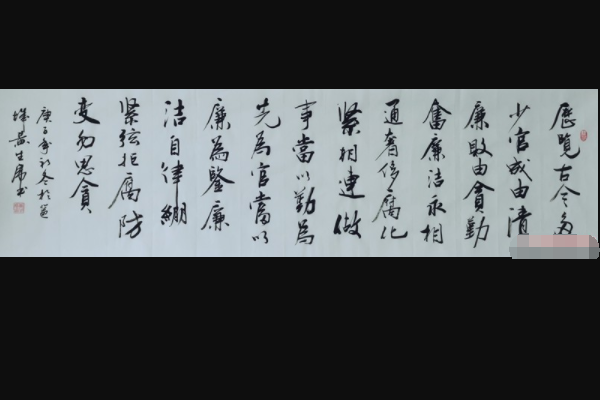 歷覽古今多
少官成由清
廉敗由貪勤
奮廉洁永相
通奢侈腐化
緊相連做
事當以勤為
先為官當以
廉為鑒廉
洁自律繃
緊弦拒腐防
變勿思貪
庚子年初冬於邕
城黄生书